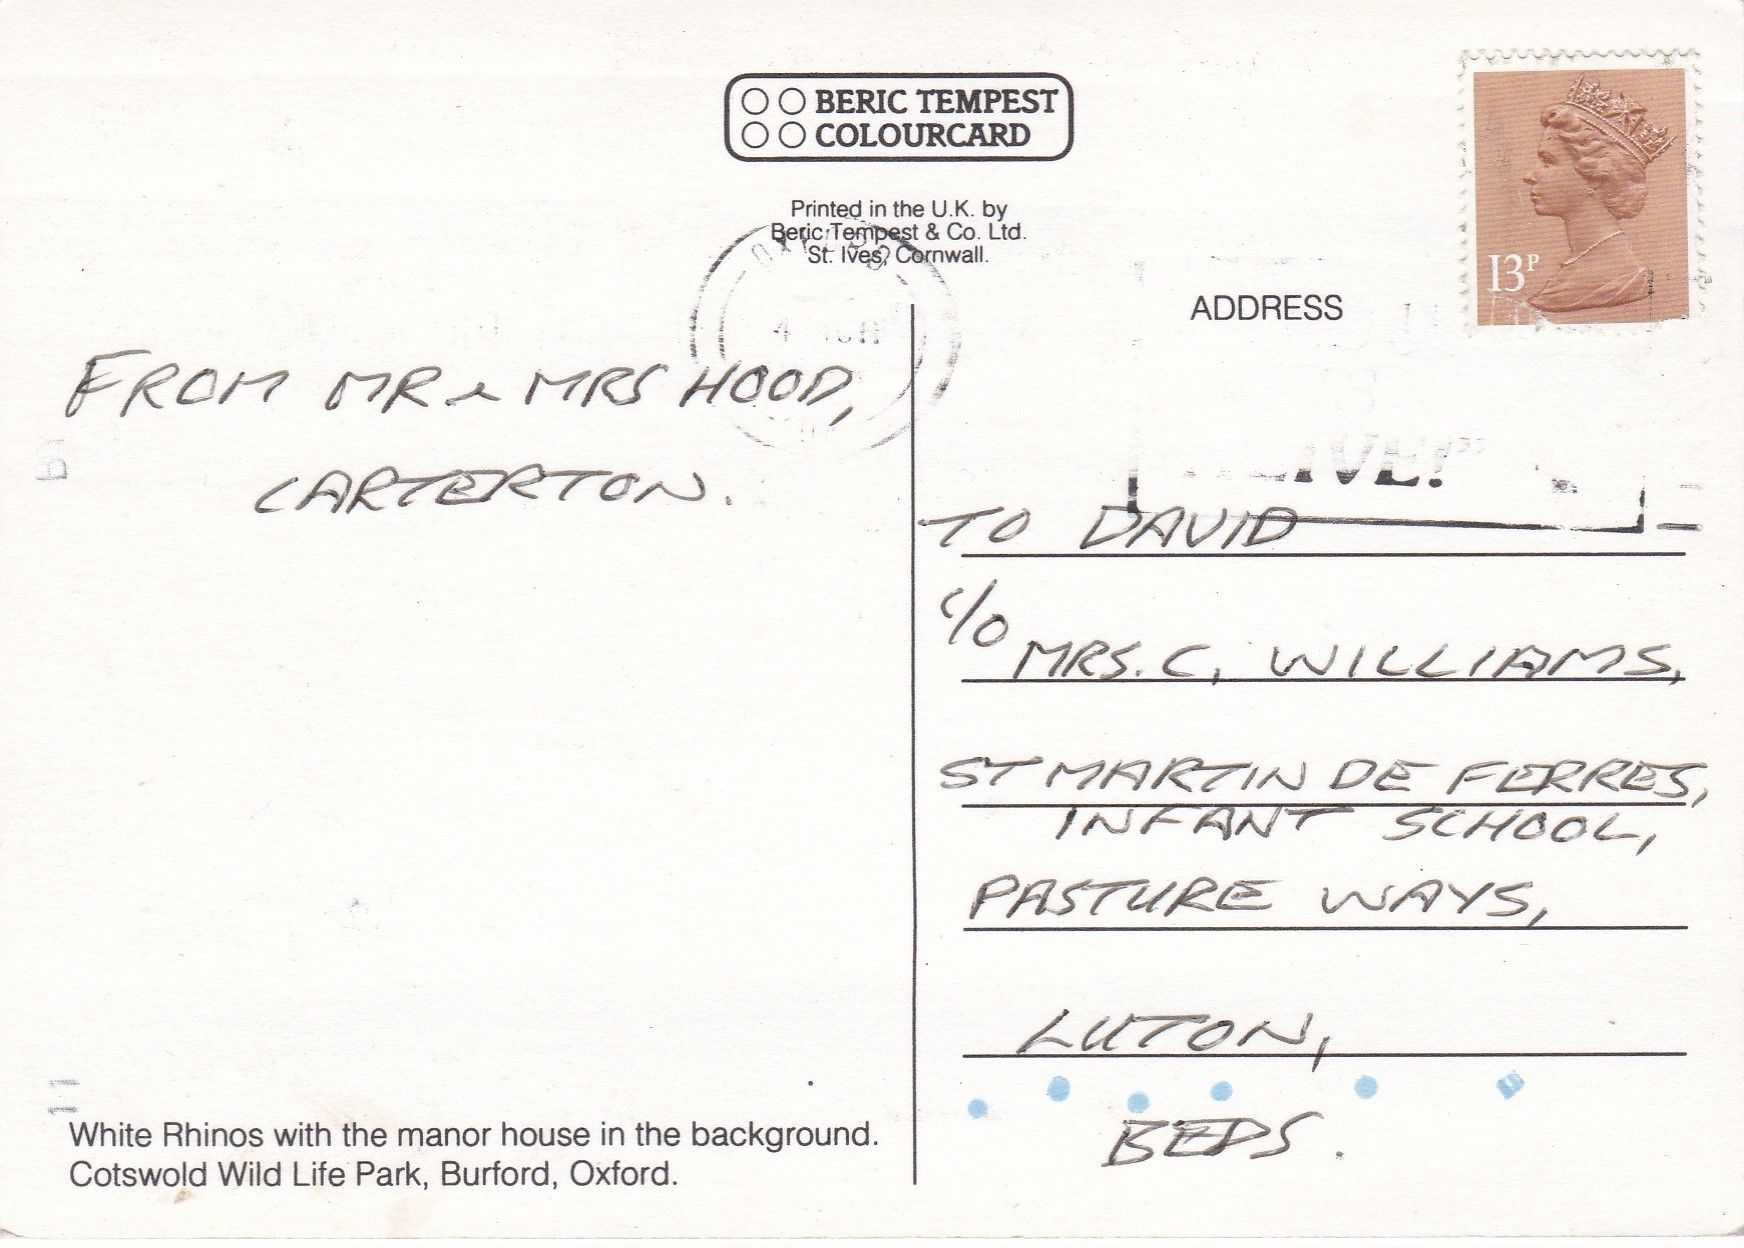 BERIC TEMPEST
COLOURCARD
Printed in the U.K. by
Beric Tempest & Co. Ltd.
St. Ives, Cornwall.
OXFORD
13P
ADDRESS
FROM MR & MRS HOOD,
CARTERTON.
TO DAVID
C/O
MRS. C. WILLIAMS,
ST MARTIN DE FERRES,
INFANT SCHOOL,
PASTURE WAYS,
LUTON,
BEDS.
White Rhinos with the manor house in the background.
Cotswold Wild Life Park, Burford, Oxford.